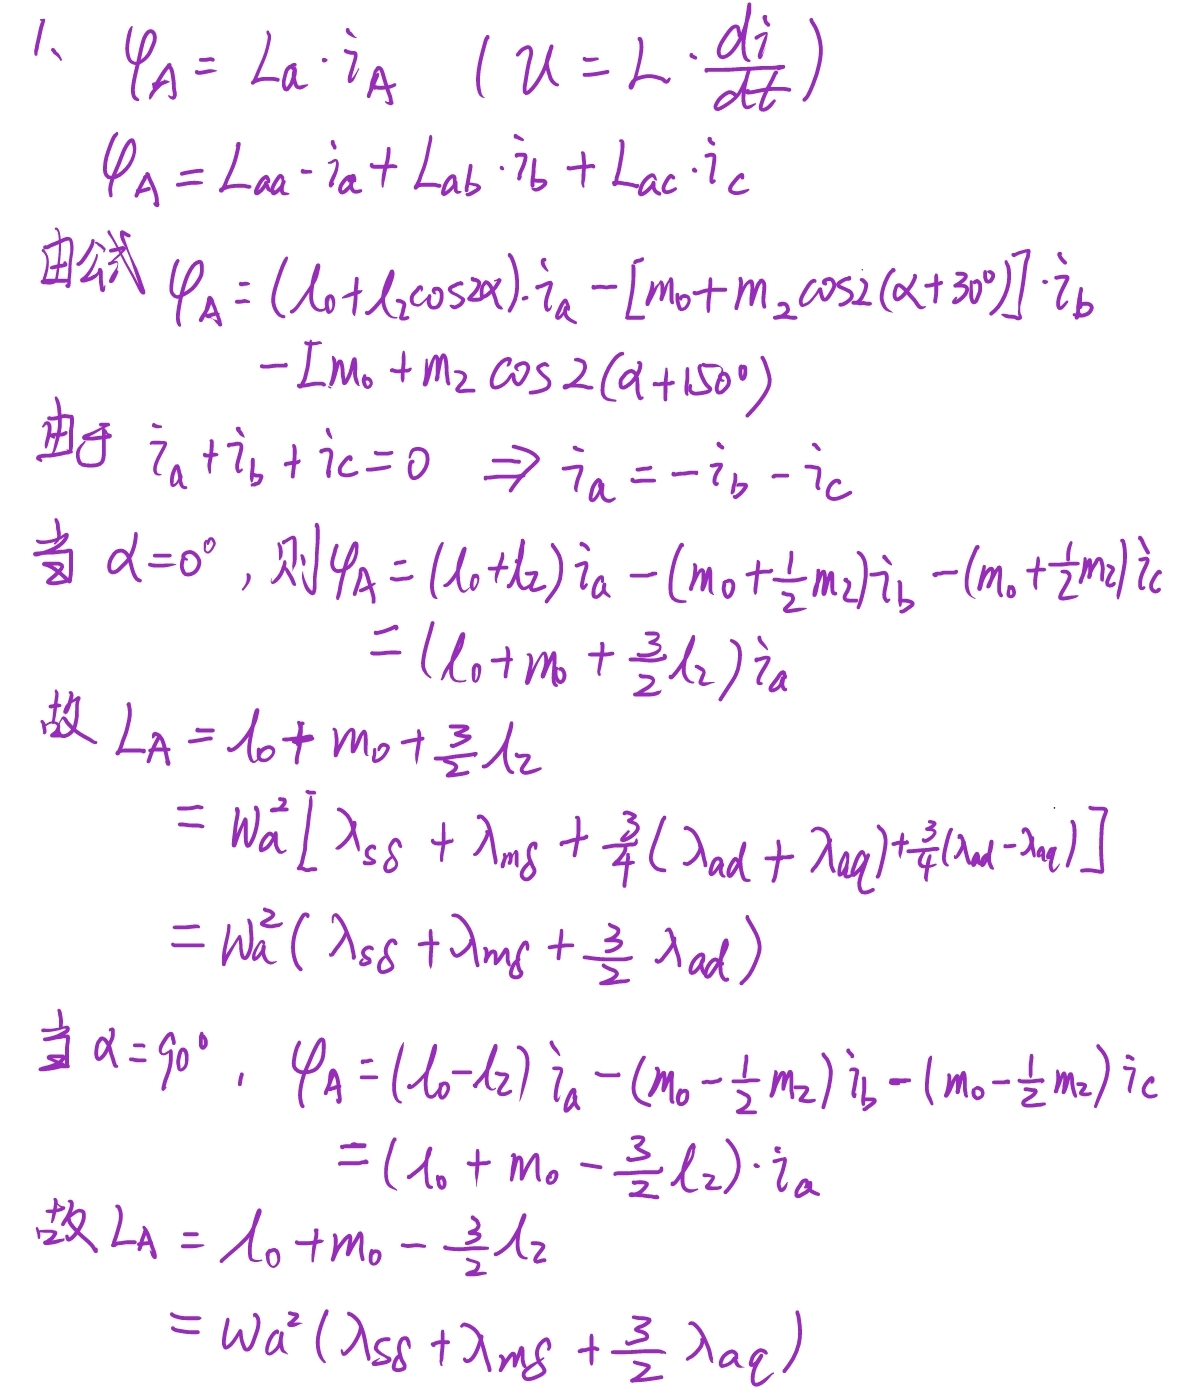 1、 φ_A = La · i_A ( u = L · di/dt )
φ_A = Laa · ia + Lab · ib + Lac · ic
由公式 φ_A = (l₀ + l₂cos2α) · ia − [m₀ + m₂ cos2(α+30°)] · ib
− [m₀ + m₂ cos2(α+150°)
由于 ia + ib + ic = 0 ⇒ ia = −ib − ic
当 α=0°, 则 φ_A = (l₀+l₂) ia − (m₀ + 1/2 m₂) ib − (m₀ + 1/2 m₂) ic
= (l₀ + m₀ + 3/2 l₂) ia
故 L_A = l₀ + m₀ + 3/2 l₂
= Wa² [ λsδ + λmδ + 3/4 ( λad + λaq) + 3/4 (λad − λaq) ]
= Wa² ( λsδ + λmδ + 3/2 λad )
当 α=90°, φ_A = (l₀−l₂) ia − (m₀ − 1/2 m₂) ib − (m₀ − 1/2 m₂) ic
= (l₀ + m₀ − 3/2 l₂) · ia
故 L_A = l₀ + m₀ − 3/2 l₂
= Wa² ( λsδ + λmδ + 3/2 λaq )